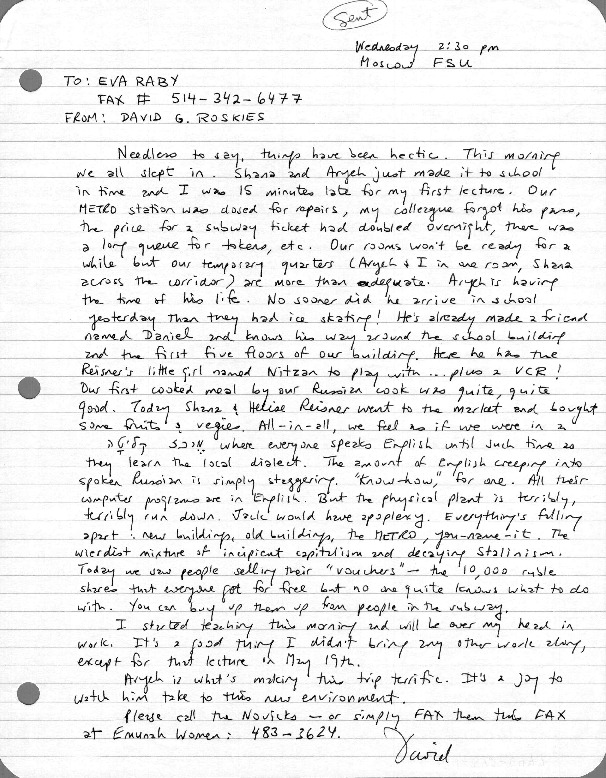 Sent
Wednesday 2:30 pm
Moscow FSU
TO: EVA RABY
FAX # 514-342-6477
FROM: DAVID G. ROSKIES
Needless to say, things have been hectic. This morning
we all slept in. Shana and Aryeh just made it to school
in time and I was 15 minutes late for my first lecture. Our
METRO station was closed for repairs, my colleague forgot his pass,
the price for a subway ticket had doubled overnight, there was
a long queue for tokens, etc. Our rooms won't be ready for a
while but our temporary quarters (Aryeh & I in one room, Shana
across the corridor) are more than adequate. Aryeh is having
the time of his life. No sooner did he arrive in school
yesterday than they had ice skating! He's already made a friend
named Daniel and knows his way around the school building
and the first five floors of our building. Here he has the
Reisner's little girl named Nitzan to play with... plus a VCR!
Our first cooked meal by our Russian cook was quite, quite
good. Today Shana & Helise Reisner went to the market and bought
some fruits & vegies. All-in-all, we feel as if we were in a
מרכז קליטה where everyone speaks English until such time as
they learn the local dialect. The amount of English creeping into
spoken Russian is simply staggering. "Know-how," for one. All their
computer programs are in English. But the physical plant is terribly,
terribly run down. Jack would have apoplexy. Everything's falling
apart: new buildings, old buildings, the METRO, you-name-it. The
wierdist mixture of incipient capitalism and decaying Stalinism.
Today we saw people selling their "vouchers" — the 10,000 ruble
shares that everyone got for free but no one quite knows what to do
with. You can buy up them up from people in the subway.
I started teaching this morning and will be over my head in
work. It's a good thing I didn't bring any other work along,
except for that lecture in May 19th.
Aryeh is what's making this trip terrific. It's a joy to
watch him take to this new environment.
Please call the Novicks — or simply FAX them this FAX
at Emunah Women: 483-3624.
David